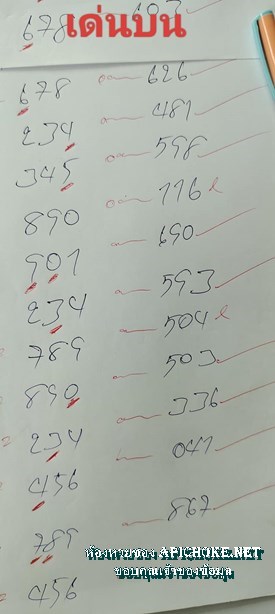 678 เด่นบน
678 626
234 481
345 598
890 116
901 690
234 593
789 504
890 503
234 336
456 041
789 867
456
ห้องหวยซอง APICHOKE.NET
ขอบคุณเจ้าของข้อมูล